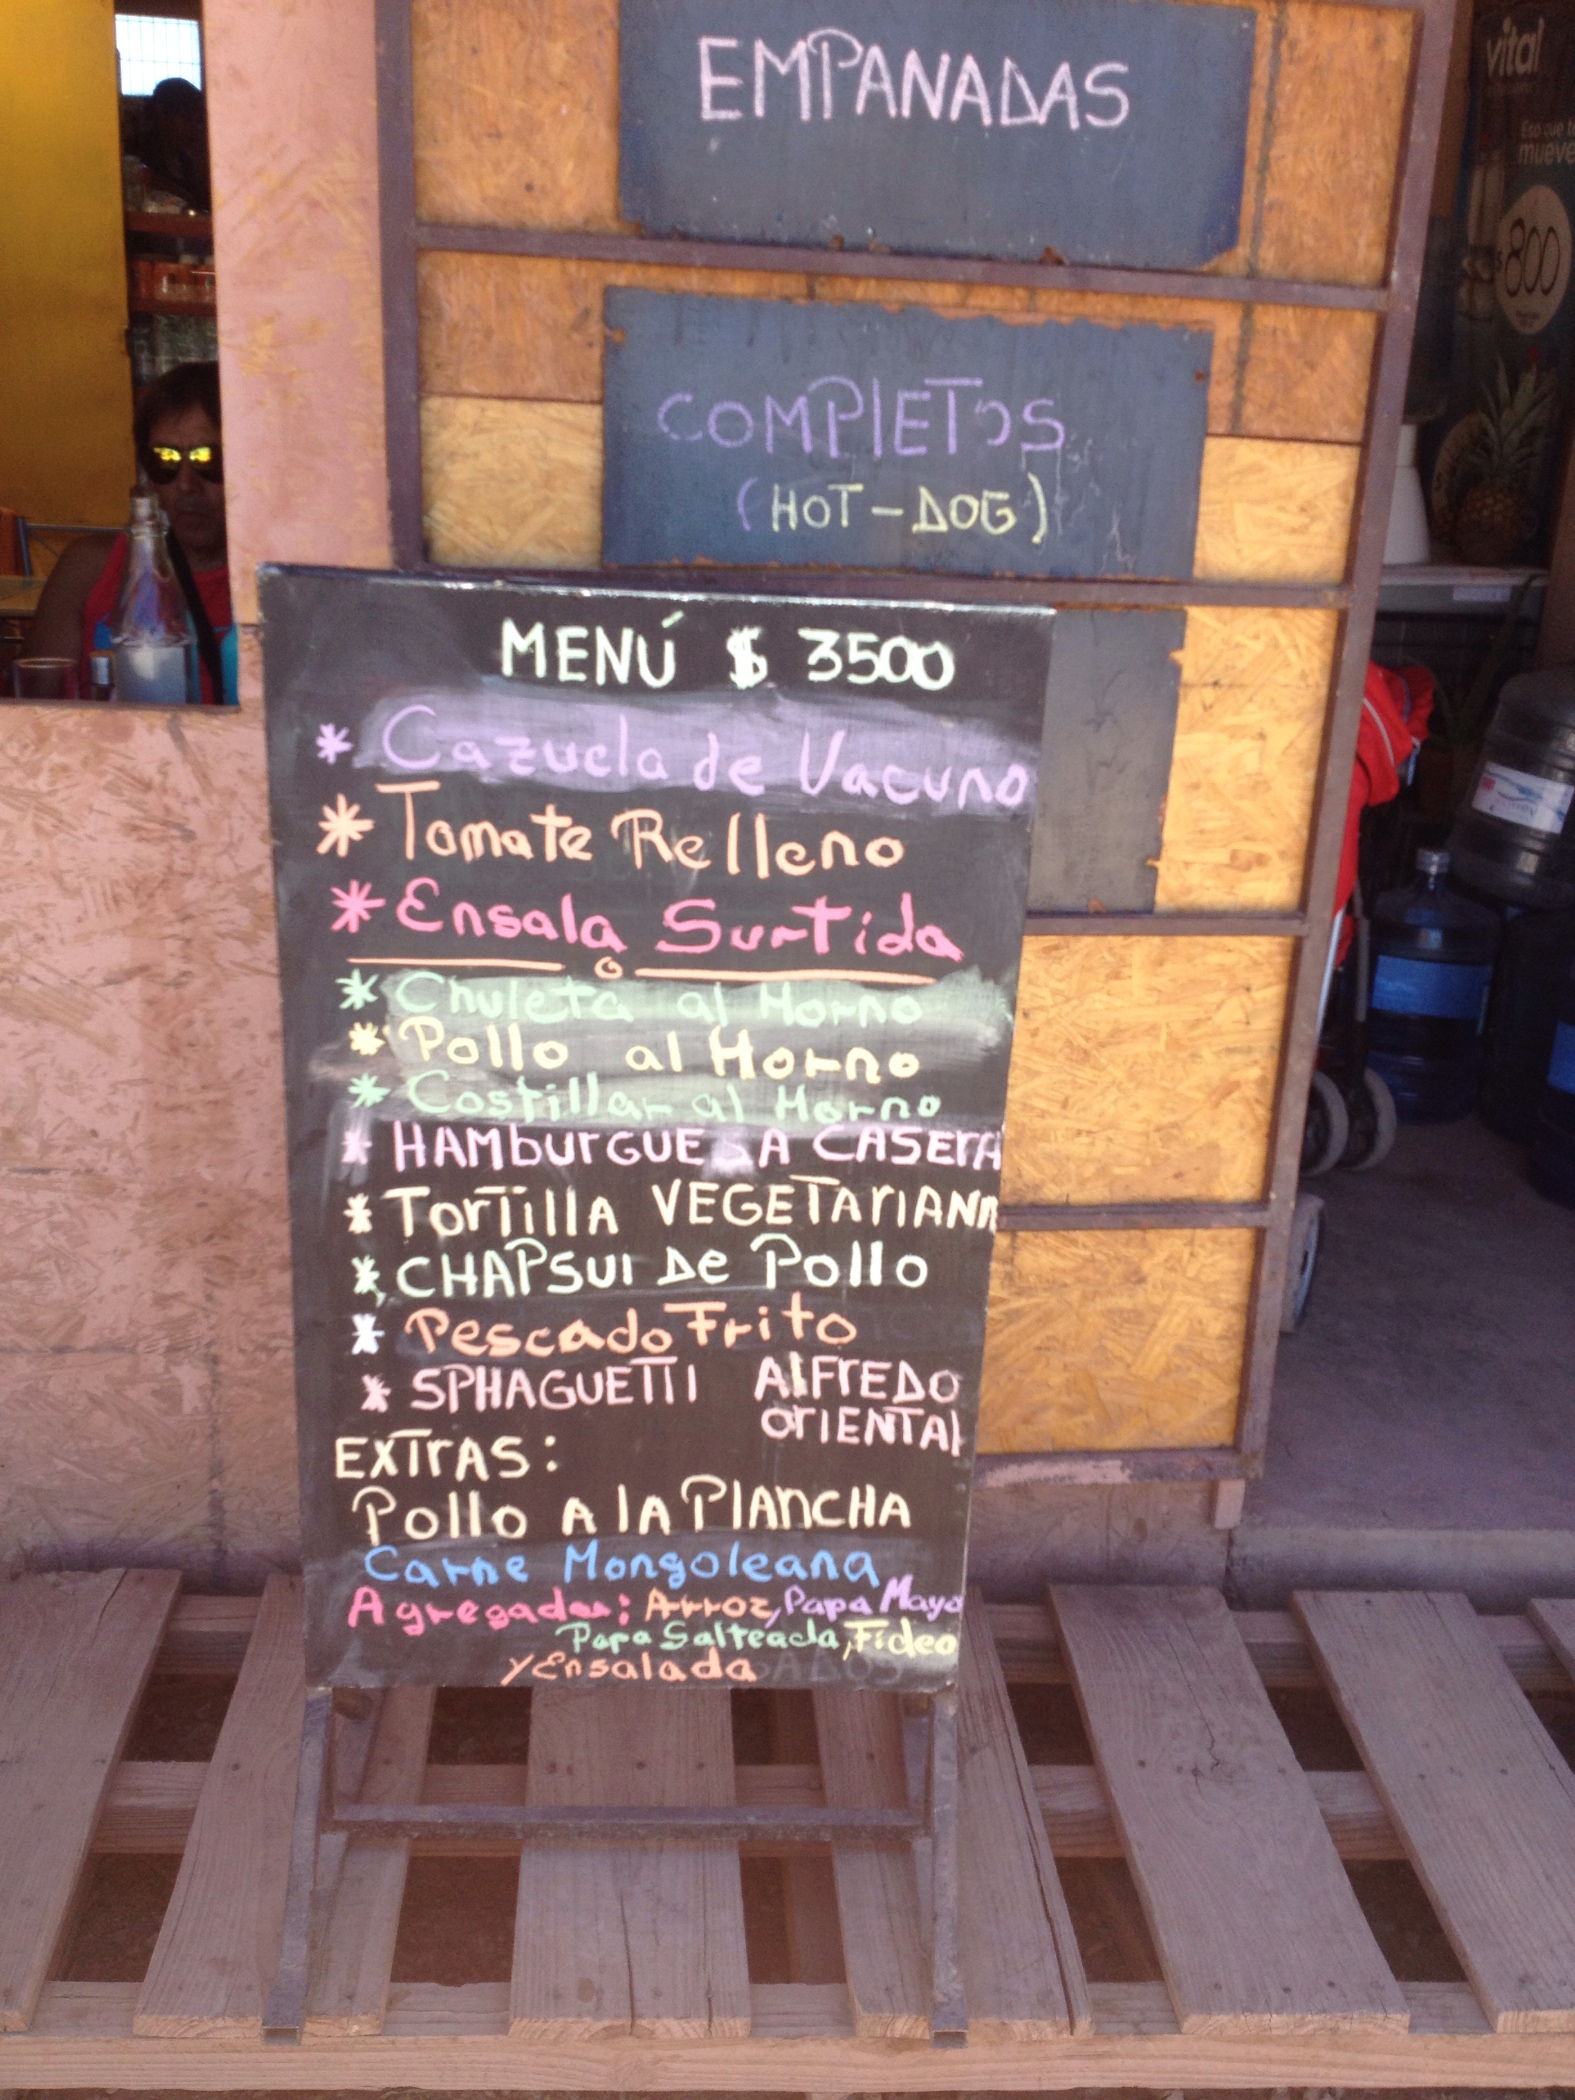 EMPANADAS
COMPlETOS
(HOT-DOG)
vital
Eso que te
mueve
800
MENÚ $ 3500
* Cazuela de Vacuno
* Tomate Relleno
* Ensala Surtida
o
* Chuleta al Horno
* Pollo al Horno
* Costillar al Horno
* HAMburGUESA CASErA
* TorTillA VEGETArIANA
* CHAPSUI De Pollo
* Pescado Frito
* SPHAGUETTI AlFrEDO
OrIENTAl
EXTrAS:
Pollo A lA PlAnCHA
Carne Mongoleana
Agregados: Arroz, Papa Mayo
Papa Salteada, Fideo
y Ensalada